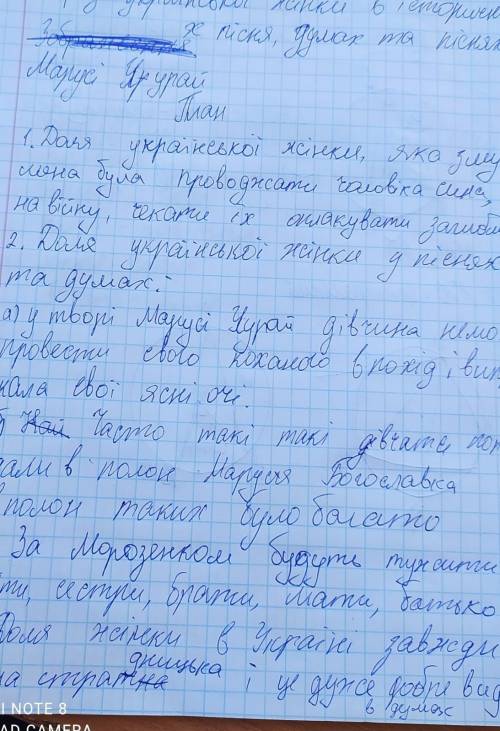 української жінки в історичн
х пісня, думах та піснях
Марусі Чурай
План
1. Доля української жінки, яка зму
шена була проводжати чоловіка сина,
на війну, чекати їх оплакувати загибл
2. Доля української жінки у піснях
та думах:
а) у творі Марусі Чурай дівчина немо
провести свого коханого в похід і вип
кала свої ясні очі.
Часто такі такі дівчата поп
дали в полон Маруся Богославка
полон таких було багато
За Морозенком будуть тужити
ти, сестри, брати, мати, батько
Доля жінки в Україні завжди
на страдницька і це дуже добре вид
в думах
I NOTE 8
AD CAMERA